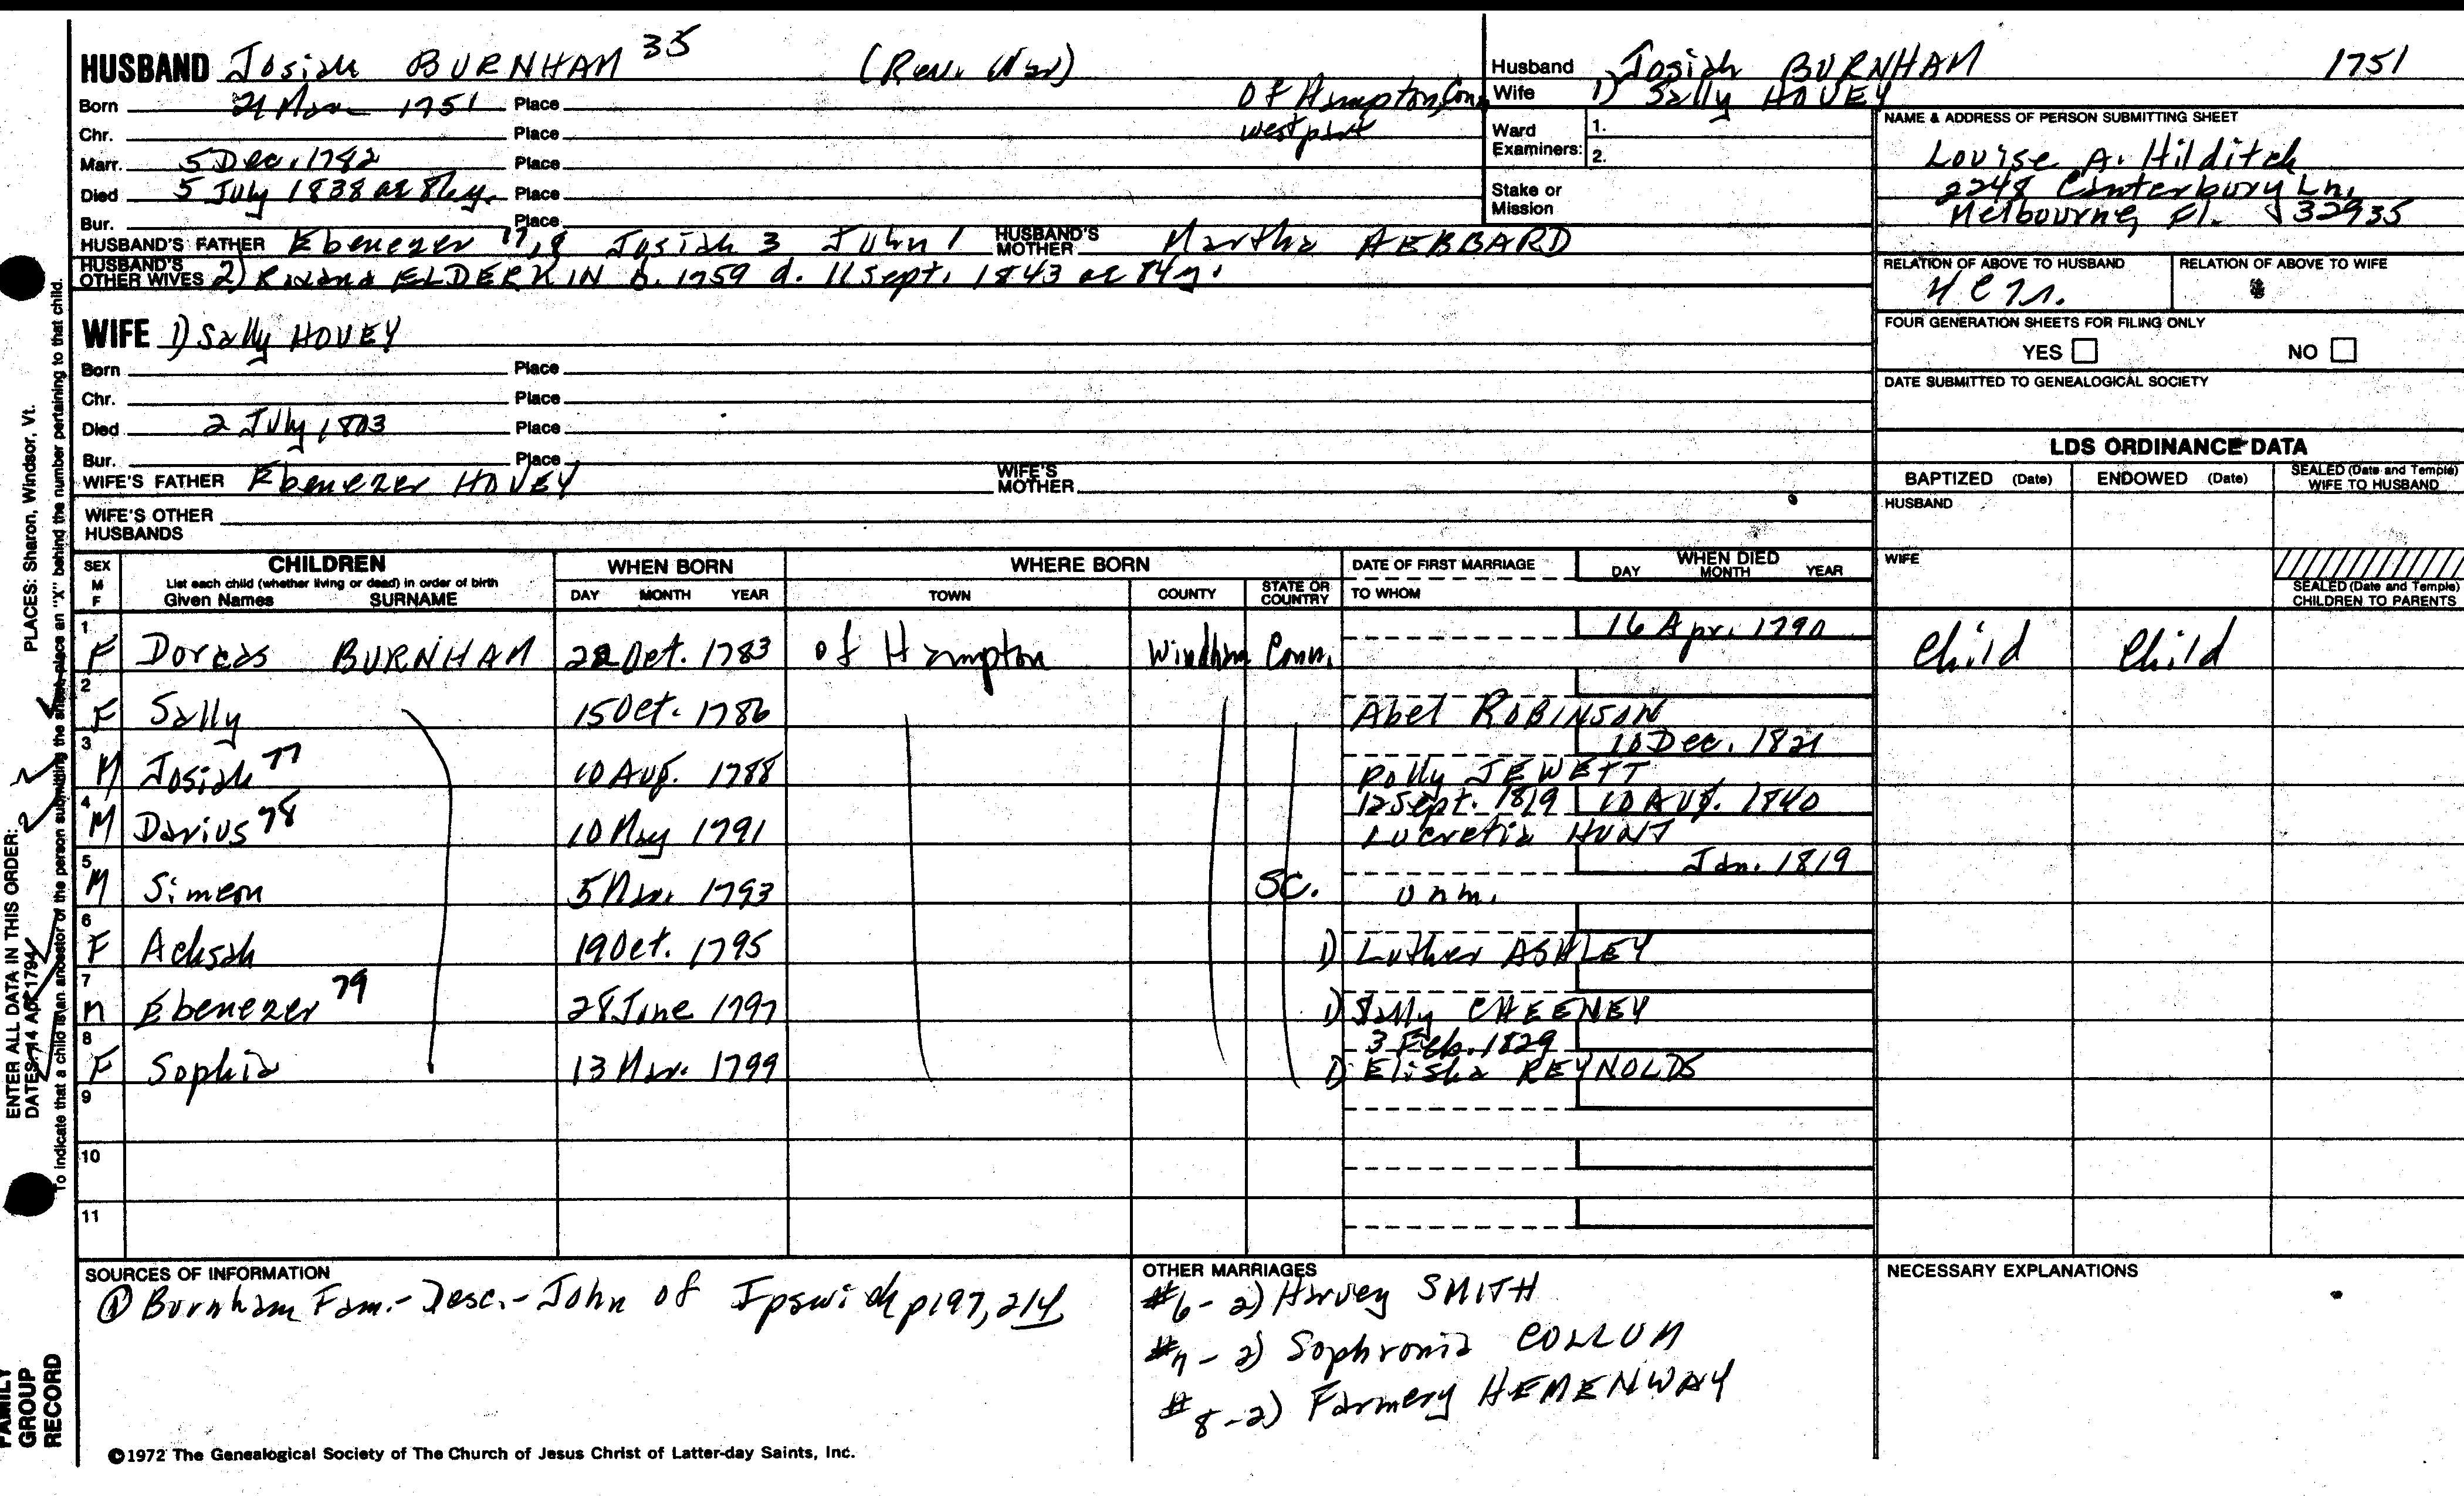 HUSBAND Josiah BURNHAM 35 (Rev. War)
Born 21 Mar 1751 Place Of Hampton, Conn.
Chr. Place westport
Marr. 5 Dec. 1782 Place
Died 5 July 1838 ae 86y. Place
Bur. Place
HUSBAND'S FATHER Ebenezer Josiah 3 John 1 HUSBAND'S MOTHER Martha HEBBARD
HUSBAND'S OTHER WIVES 2) ELDERKIN b. 1759 d. 11 Sept. 1843 ae 84y.
WIFE 1) Sally HOVEY
Born Place
Chr. Place
Died 2 July 1803 Place
Bur. Place
WIFE'S FATHER Ebenezer HOVEY WIFE'S MOTHER
WIFE'S OTHER
HUSBANDS
Husband Josiah BURNHAM 1751
Wife 1) Sally HOVEY
Ward Examiners: 1.
2.
Stake or
Mission
NAME & ADDRESS OF PERSON SUBMITTING SHEET
Louise A. Hilditch
2248 Canterbury Ln.
Melbourne, Fl. 32935
RELATION OF ABOVE TO HUSBAND RELATION OF ABOVE TO WIFE
FOUR GENERATION SHEETS FOR FILING ONLY
YES NO
DATE SUBMITTED TO GENEALOGICAL SOCIETY
LDS ORDINANCE DATA
BAPTIZED (Date) ENDOWED (Date) SEALED (Date and Temple) WIFE TO HUSBAND
HUSBAND
WIFE
SEALED (Date and Temple)
CHILDREN TO PARENTS
SEX M F CHILDREN WHEN BORN WHERE BORN DATE OF FIRST MARRIAGE WHEN DIED
List each child (whether living or dead) in order of birth
Given Names SURNAME DAY MONTH YEAR TOWN COUNTY STATE OR COUNTRY TO WHOM DAY MONTH YEAR
1 16 Apr. 1790
F Dorcas BURNHAM 22 Oct. 1783 of Hampton Windham Conn. Child Child
2
F Sally 15 Oct. 1786 Abel ROBINSON
3 10 Dec. 1821
M Josiah 77 10 Aug. 1788 Polly JEWETT
4 12 Sept. 1819 10 Aug. 1840
M Darius 78 10 May 1791 Lucretia HUNT
5 Jan. 1819
M Simeon 5 Mar. 1793 SC. unm.
6
F Achsah 19 Oct. 1795 1) Luther ASHLEY
7
M Ebenezer 79 28 June 1797 1) Sally CHEENEY
8 3 Feb. 1829
F Sophia 13 Mar. 1799 1) Elisha REYNOLDS
9
10
11
SOURCES OF INFORMATION
① Burnham Fam.- Desc.- John of Ipswich p197, 214
OTHER MARRIAGES
#6 - 2) Harvey SMITH
#7 - 2) Sophronia COLLUM
#8 - 2) Farmery HEMENWAY
NECESSARY EXPLANATIONS
©1972 The Genealogical Society of The Church of Jesus Christ of Latter-day Saints, Inc.
FAMILY
GROUP
RECORD
ENTER ALL DATA IN THIS ORDER: PLACES: Sharon, Windsor, Vt.
DATES: 14 Apr 1794
To indicate that a child is an ancestor of the person submitting the sheet, place an "X" behind the number pertaining to that child.